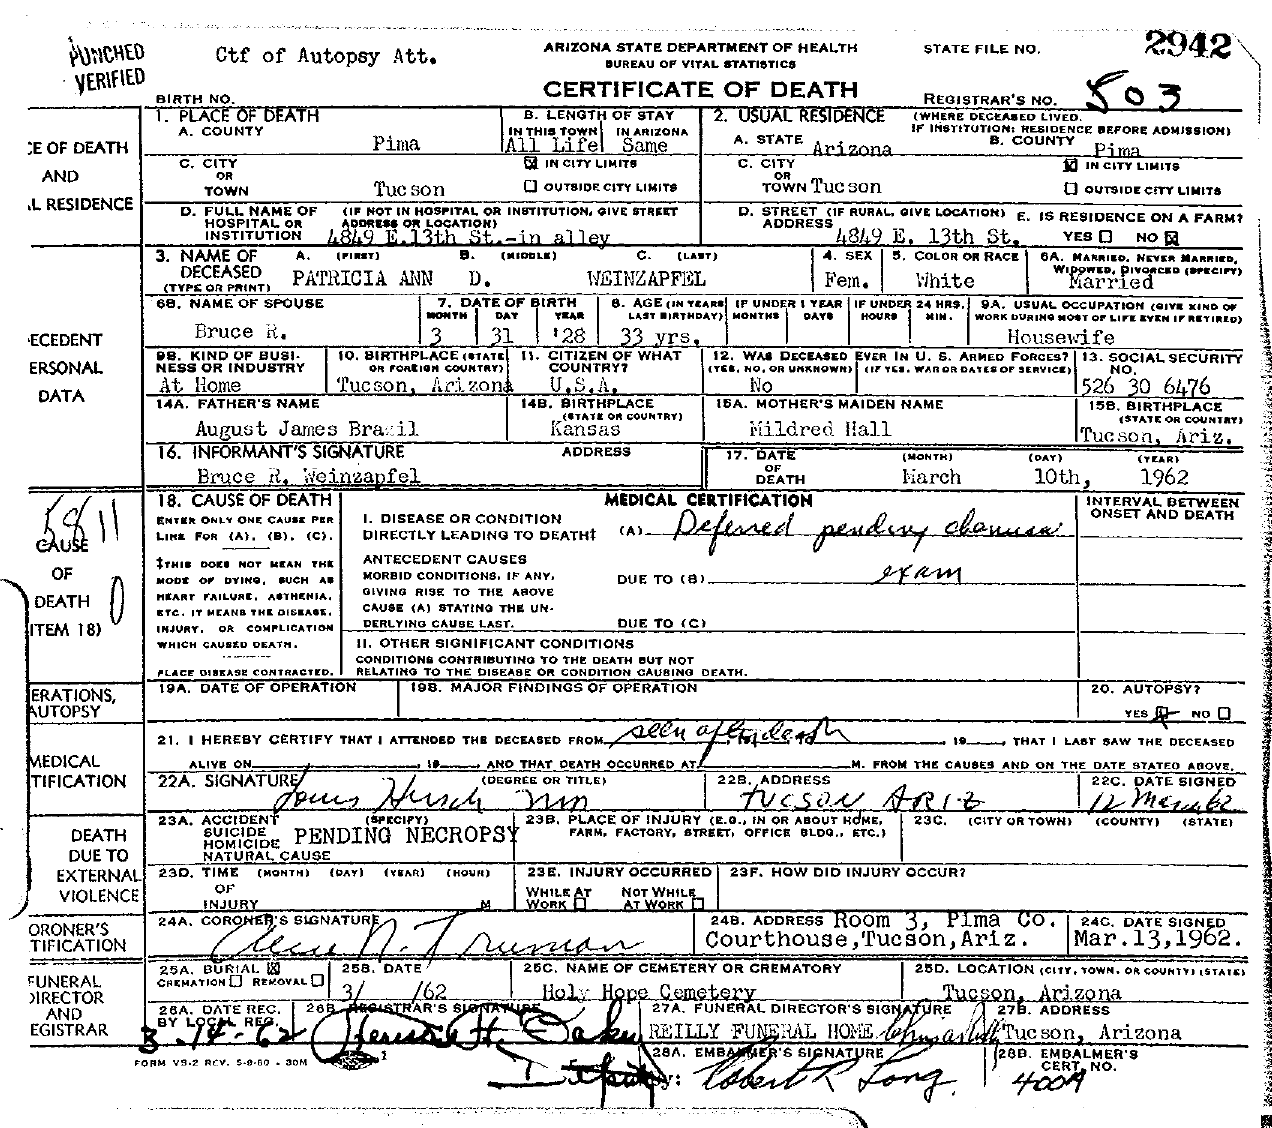 PUNCHED
VERIFIED
Ctf of Autopsy Att.
ARIZONA STATE DEPARTMENT OF HEALTH
BUREAU OF VITAL STATISTICS
CERTIFICATE OF DEATH
STATE FILE NO. 2942
BIRTH NO.
REGISTRAR'S NO. 503
CE OF DEATH
AND
L RESIDENCE
1. PLACE OF DEATH
A. COUNTY Pima
B. LENGTH OF STAY
IN THIS TOWN All Life
IN ARIZONA Same
2. USUAL RESIDENCE (WHERE DECEASED LIVED.
IF INSTITUTION: RESIDENCE BEFORE ADMISSION)
A. STATE Arizona
B. COUNTY Pima
C. CITY
OR
TOWN Tucson
☒ IN CITY LIMITS
☐ OUTSIDE CITY LIMITS
C. CITY
OR
TOWN Tucson
☒ IN CITY LIMITS
☐ OUTSIDE CITY LIMITS
D. FULL NAME OF (IF NOT IN HOSPITAL OR INSTITUTION, GIVE STREET
HOSPITAL OR ADDRESS OR LOCATION)
INSTITUTION 4849 E.13th St.-in alley
D. STREET (IF RURAL, GIVE LOCATION)
ADDRESS 4849 E. 13th St.
E. IS RESIDENCE ON A FARM?
YES ☐ NO ☒
ECEDENT
ERSONAL
DATA
3. NAME OF DECEASED (TYPE OR PRINT)
A. (FIRST) B. (MIDDLE) C. (LAST)
PATRICIA ANN D. WEINZAPFEL
4. SEX Fem.
5. COLOR OR RACE White
6A. MARRIED, NEVER MARRIED,
WIDOWED, DIVORCED (SPECIFY)
Married
6B. NAME OF SPOUSE
Bruce R.
7. DATE OF BIRTH
MONTH DAY YEAR
3 31 '28
8. AGE (IN YEARS
LAST BIRTHDAY)
33 yrs.
IF UNDER 1 YEAR
MONTHS DAYS
IF UNDER 24 HRS.
HOURS MIN.
9A. USUAL OCCUPATION (GIVE KIND OF
WORK DURING MOST OF LIFE EVEN IF RETIRED)
Housewife
9B. KIND OF BUSI-
NESS OR INDUSTRY
At Home
10. BIRTHPLACE (STATE
OR FOREIGN COUNTRY)
Tucson, Arizona
11. CITIZEN OF WHAT
COUNTRY?
U.S.A.
12. WAS DECEASED EVER IN U. S. ARMED FORCES?
(YES, NO, OR UNKNOWN) (IF YES, WAR OR DATES OF SERVICE)
No
13. SOCIAL SECURITY
NO.
526 30 6476
14A. FATHER'S NAME
August James Brazil
14B. BIRTHPLACE
(STATE OR COUNTRY)
Kansas
15A. MOTHER'S MAIDEN NAME
Mildred Hall
15B. BIRTHPLACE
(STATE OR COUNTRY)
Tucson, Ariz.
16. INFORMANT'S SIGNATURE ADDRESS
Bruce R. Weinzapfel
17. DATE
OF
DEATH
(MONTH) (DAY) (YEAR)
March 10th, 1962
5811
CAUSE
OF
DEATH
ITEM 18)
0
18. CAUSE OF DEATH
ENTER ONLY ONE CAUSE PER
LINE FOR (A), (B), (C).
‡THIS DOES NOT MEAN THE
MODE OF DYING, SUCH AS
HEART FAILURE, ASTHENIA,
ETC. IT MEANS THE DISEASE,
INJURY, OR COMPLICATION
WHICH CAUSED DEATH.
PLACE DISEASE CONTRACTED.
MEDICAL CERTIFICATION
I. DISEASE OR CONDITION
DIRECTLY LEADING TO DEATH‡ (A) Deferred pending
ANTECEDENT CAUSES
MORBID CONDITIONS, IF ANY,
GIVING RISE TO THE ABOVE
CAUSE (A) STATING THE UN-
DERLYING CAUSE LAST.
DUE TO (B) exam
DUE TO (C)
II. OTHER SIGNIFICANT CONDITIONS
CONDITIONS CONTRIBUTING TO THE DEATH BUT NOT
RELATING TO THE DISEASE OR CONDITION CAUSING DEATH.
INTERVAL BETWEEN
ONSET AND DEATH
ERATIONS,
AUTOPSY
19A. DATE OF OPERATION
19B. MAJOR FINDINGS OF OPERATION
20. AUTOPSY?
YES ☒ NO ☐
MEDICAL
TIFICATION
21. I HEREBY CERTIFY THAT I ATTENDED THE DECEASED FROM seen after death 19 , THAT I LAST SAW THE DECEASED
ALIVE ON 19 AND THAT DEATH OCCURRED AT M. FROM THE CAUSES AND ON THE DATE STATED ABOVE.
22A. SIGNATURE (DEGREE OR TITLE)
Louis Hirsch MD
22B. ADDRESS
TUCSON ARIZ
22C. DATE SIGNED
12 Mar 62
DEATH
DUE TO
EXTERNAL
VIOLENCE
23A. ACCIDENT (SPECIFY)
SUICIDE
HOMICIDE
NATURAL CAUSE
PENDING NECROPSY
23B. PLACE OF INJURY (E.G., IN OR ABOUT HOME,
FARM, FACTORY, STREET, OFFICE BLDG., ETC.)
23C. (CITY OR TOWN) (COUNTY) (STATE)
23D. TIME (MONTH) (DAY) (YEAR) (HOUR)
OF
INJURY M
23E. INJURY OCCURRED
WHILE AT WORK ☐ NOT WHILE AT WORK ☐
23F. HOW DID INJURY OCCUR?
ORONER'S
TIFICATION
24A. CORONER'S SIGNATURE
N. Truman
24B. ADDRESS Room 3, Pima Co.
Courthouse,Tucson,Ariz.
24C. DATE SIGNED
Mar.13,1962.
FUNERAL
DIRECTOR
AND
EGISTRAR
25A. BURIAL ☒
CREMATION ☐ REMOVAL ☐
25B. DATE
3/ /62
25C. NAME OF CEMETERY OR CREMATORY
Holy Hope Cemetery
25D. LOCATION (CITY, TOWN, OR COUNTY) (STATE)
Tucson, Arizona
26A. DATE REC.
BY LOCAL REG.
3-14-62
26B. REGISTRAR'S SIGNATURE
27A. FUNERAL DIRECTOR'S SIGNATURE
REILLY FUNERAL HOME
27B. ADDRESS
Tucson, Arizona
28A. EMBALMER'S SIGNATURE
Robert R Long
28B. EMBALMER'S
CERT. NO.
400A
FORM VS-2 REV. 5-9-60 - 30M